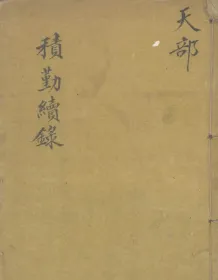 天部
積勤續錄